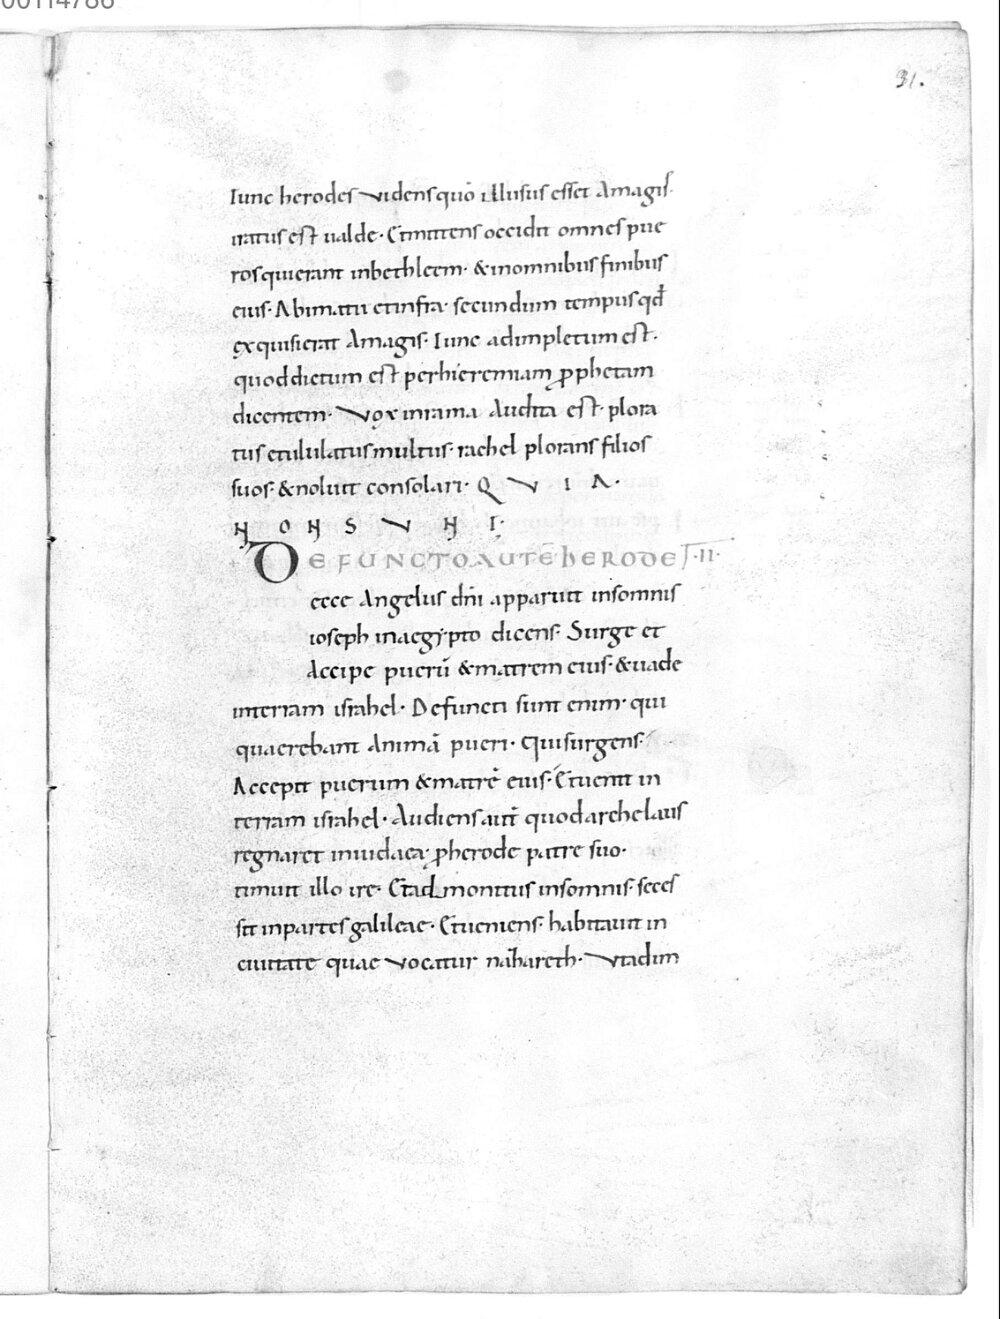 00114786
31.
Tunc herodes videns quō illusus esset Amagis·
iratus est ualde· Et mittens occidit omnes pue
ros quierant inbethleem· & inomnibus finibus
eius· Abimatu etinfra· secundum tempus qđ
exquisierat Amagis· Tunc adimpletum est·
quod dictum est perhieremiam ꝓphetam
dicentem· Vox inrama Audita est· plora
tus etululatus multus· rachel plorans filios
suos· & noluit consolari· Q V I A·
N O N S V N T·
DEFUNCTO AUTĒ HERODE· II·
ecce Angelus dn̄i apparuit insomnis
ioseph inaegypto dicens· Surge et
Accipe puerū & matrem eius· & uade
interram israhel· Defuncti sunt enim· qui
quaerebant Animā pueri· Qui surgens·
Accepit puerum & matrē eius· Et uenit in
terram israhel· Audiens aut̄ quod archelaus
regnaret iniudaea· ꝓherode patre suo·
timuit illo ire· Et admonitus insomnis· seces
sit inpartes galileae· Et ueniens· habitauit in
ciuitate quae vocatur nazareth· Vtadim